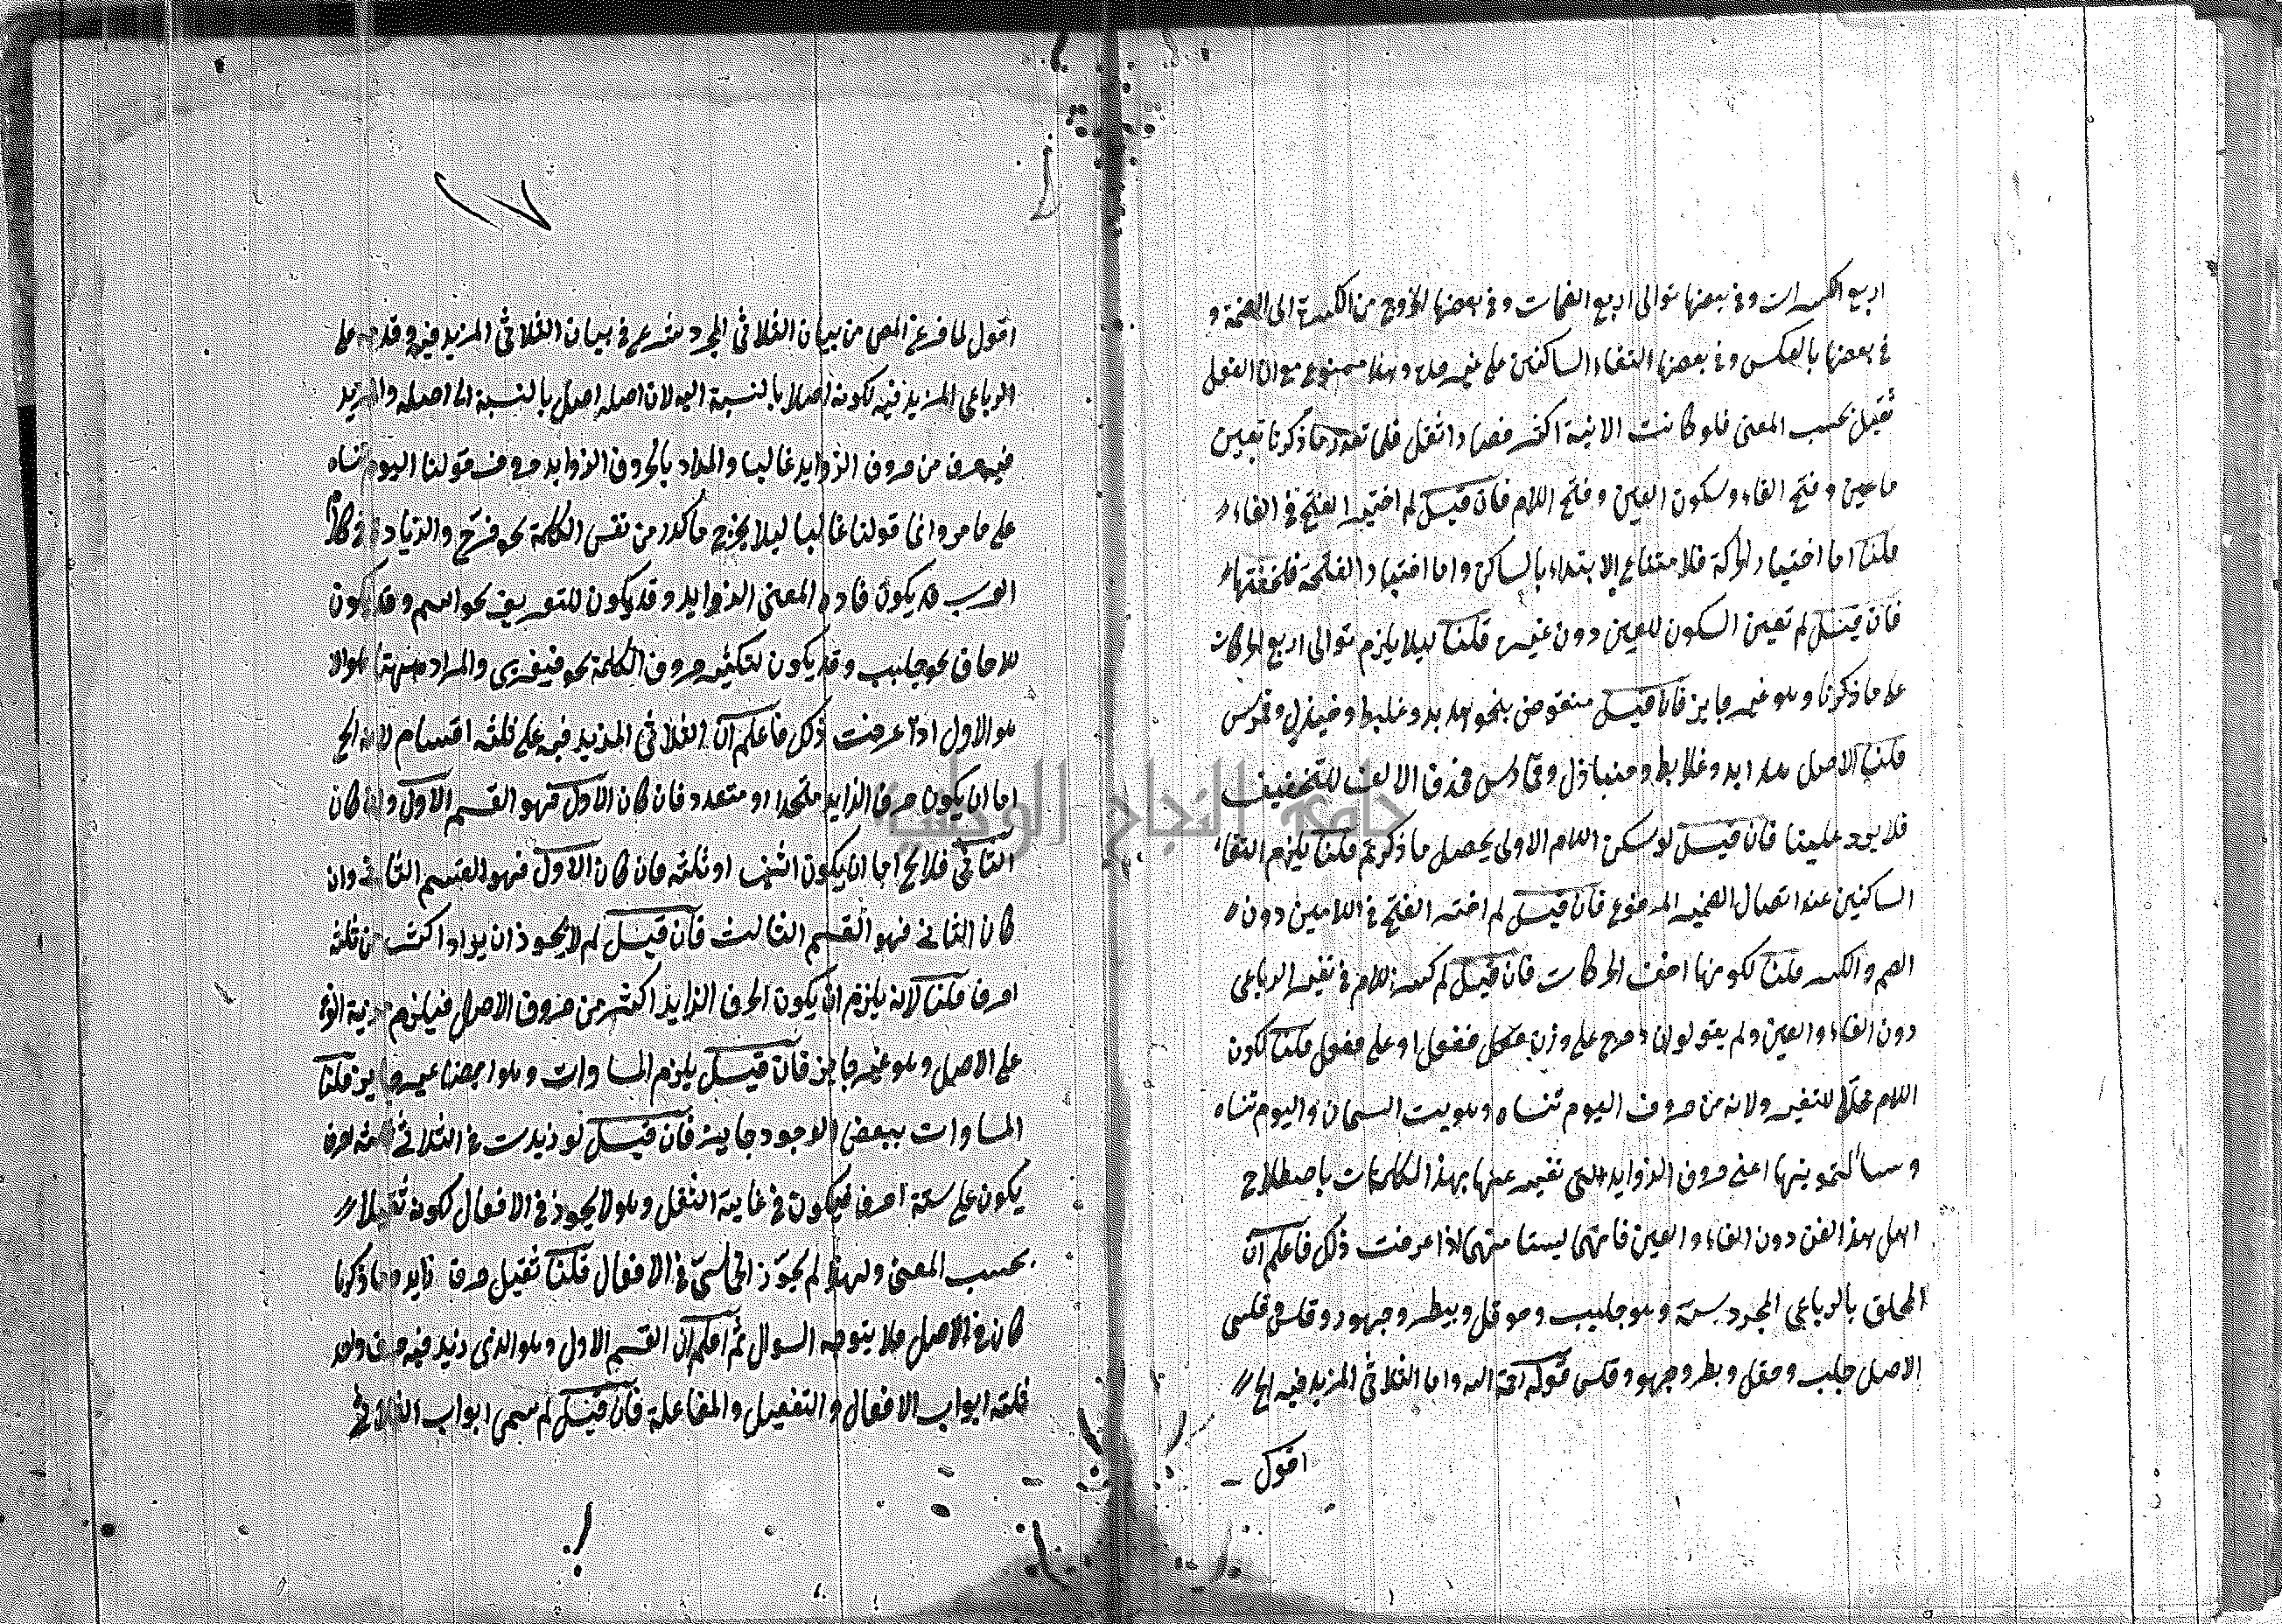 اربع الكسرات وفى بعضها توالى اربع الضمات وفى بعضها الخروج من الكسرة الى الضمة و
فى بعضها بالعكس وفى بعضها التقاء الساكنين على غير حده وهذا ممنوع مع ان الفعل
ثقيل بحسب المعنى فلو كانت الابنية اكثر فصار اثقل فلما تعذر ما ذكرنا تعين
ما عين وفتح الفاء وسكون العين وفتح اللام فان قيل لم اختير الفتح فى الفاء
قلنا اما اختيار الحركة فلامتناع الابتداء بالساكن واما اختيار الفتحة فلخفتها
فان قيل لم تعين السكون للعين دون غيره قلنا ليلا يلزم توالى اربع الحركات
على ما ذكرنا وهو غير جايز فان قيل منقوض بنحو هدبد وعلبط
قلنا الاصل هدابد وعلابط فحذف الالف للتخفيف
فلا يرد علينا فان قيل لو سكن اللام الاولى يحصل ما ذكرتم قلنا يلزم التقاء
الساكنين عند اتصال الضمير المرفوع فان قيل لم اختير الفتح فى اللامين دون
الضم والكسر قلنا لكونها اخف الحركات فان قيل لم كرر اللام فى تعبير الرباعى
دون الفاء والعين ولم يقولوا ان دحرج على وزن قلنا لكون
اللام محلا للتغير ولانه من حروف اليوم تنساه وهويت السمان واليوم تنساه
وسألتمونيها اعنى حروف الزوايد التى تعبر عنها بهذا الكلمات باصطلاح
اهل هذا الفن دون الفاء والعين فانهما ليستا منها اذا عرفت ذلك فاعلم ان
الملحق بالرباعى المجرد ستة وهو جلبب وحوقل وبيطر وجهور وقلسى
الاصل جلب وحقل وبطر وجهر وقلس قوله رحمة الله واما الثلاثى المزيد فيه الخ
اقول
١٧
اقول لما فرغ المص من بيان الثلاثى المجرد شرع فى بيان الثلاثى المزيد فيه وقدمه على
الرباعى المزيد فيه لكونه اصلا بالنسبة اليه لان اصله اصل بالنسبة الى اصله والمزيد
فيه حرف من حروف الزوايد غالبا والمراد بالحروف الزوايد حروف قولنا اليوم تنساه
على ما مر وانما قولنا غالبا ليلا يخرج ما كرر من نفس الكلمة نحو فرح والزيادة فى كلام
العرب قد يكون المعنى الزوايد وقد يكون للتعريف نحو وقد يكون
للالحاق نحو جلبب وقد يكون لتكثير حروف الكلمة نحو والمراد منها هو الا
هو الاول اذا عرفت ذلك فاعلم ان الثلاثى المزيد فيه على ثلثه اقسام لانه الخ
اما ان يكون حرف الزايد متحدا او متعدد فان كان الاول فهو القسم الاول وان كان
الثانى فلا يخ اما ان يكون اثنين او ثلثه فان كان الاول فهو القسم الثانى وان
كان الثانى فهو القسم الثالث فان قيل لم لا يجوز ان يزاد اكثر من ثلثه
احرف قلنا لانه يلزم ان يكون الحرف الزايد اكثر من حروف الاصل فيلزم مزية الفرع
على الاصل وهو غير جايز فان قيل يلزم المساوات وهو ايضا غير جايز قلنا
المساوات ببعض الوجوه جايز فان قيل لو زيدت فى الثلاثى ثلثه احرف
يكون على ستة احرف فيكون فى غاية الثقل وهو لا يجوز فى الافعال لكونه ثقيلا
بحسب المعنى ولهذا لم يجوز الخماسى فى الافعال قلنا ثقيل حرف زايد وما ذكرنا
كان فى الاصل فلا يتوجه السؤال ثم اعلم ان القسم الاول وهو الذى زيد فيه حرف واحد
ثلثه ابواب الافعال والتفعيل والمفاعلة فان قيل لم سمى ابواب الثلاثى